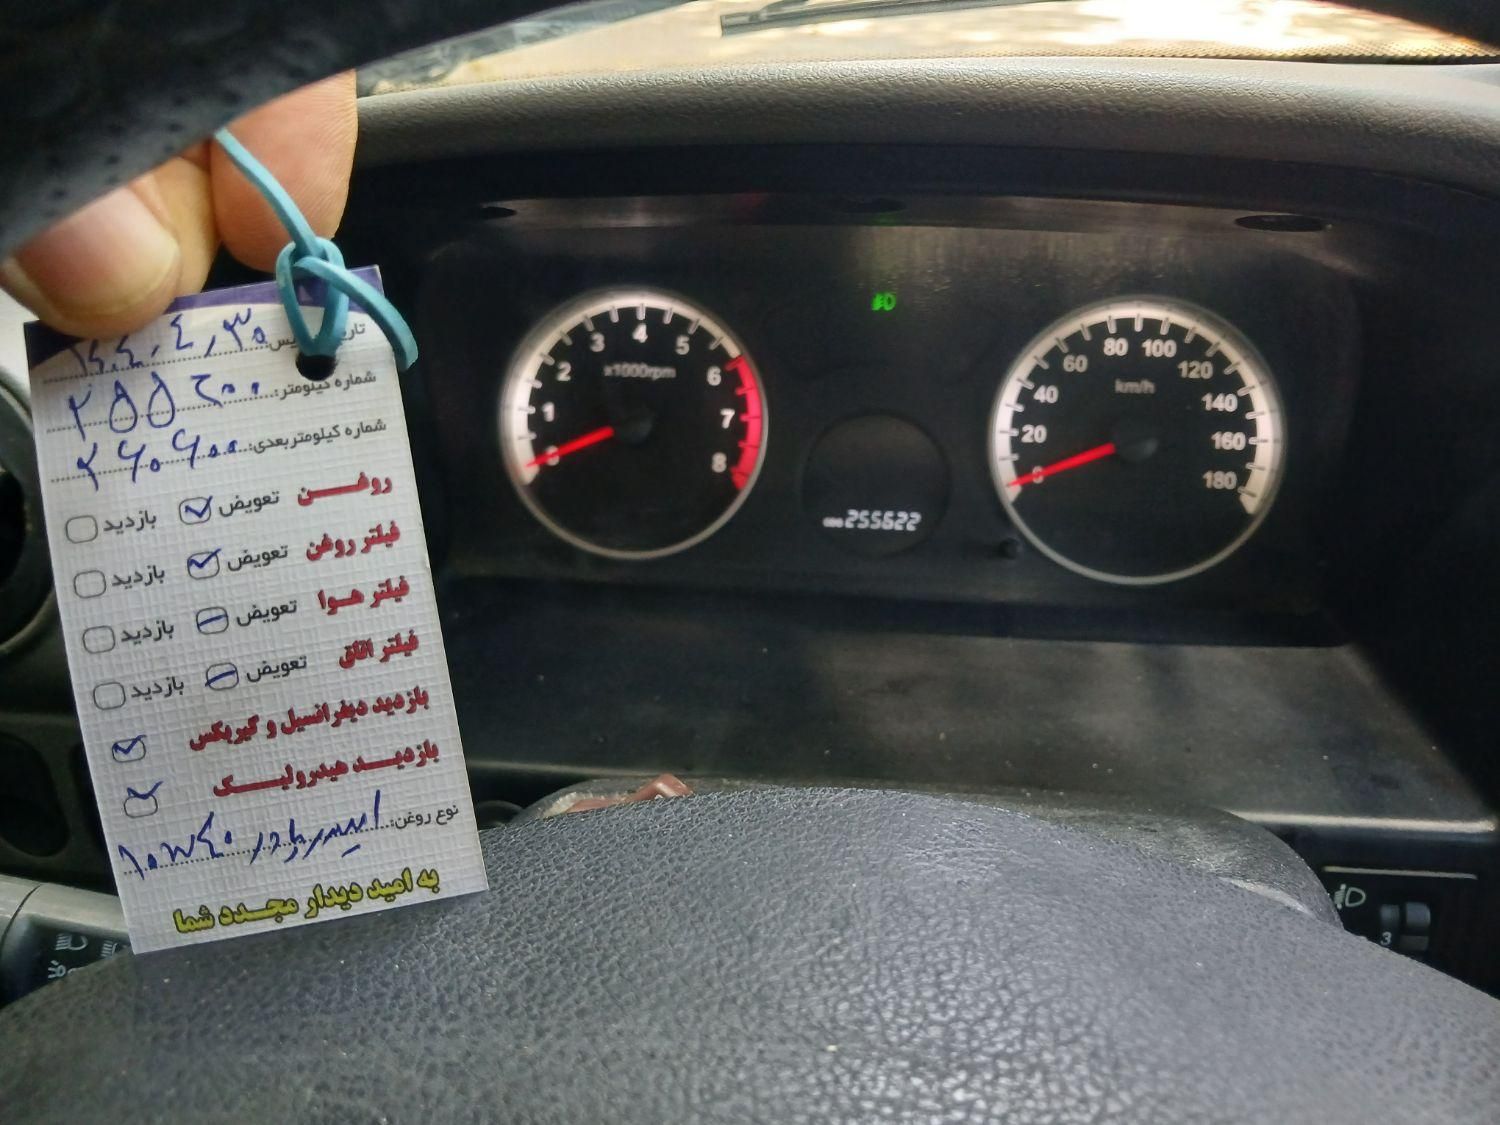 ۱۴۰۴٫۴٫۳۰
شماره کیلومتر: ۲۵۵۶۰۰
شماره کیلومتر بعدی: ۲۶۰۶۰۰
روغن تعویض بازدید
فیلتر روغن تعویض بازدید
فیلتر هوا تعویض بازدید
فیلتر اتاق تعویض بازدید
بازدید دیفرانسیل و گیربکس
بازدید هیدرولیک
نوع روغن: اسپیدی پاور ۱۰w۴۰
به امید دیدار مجدد شما
0 1 2 3 4 5 6 7 8
x1000rpm
255622
0 20 40 60 80 100 120 140 160 180
km/h
3